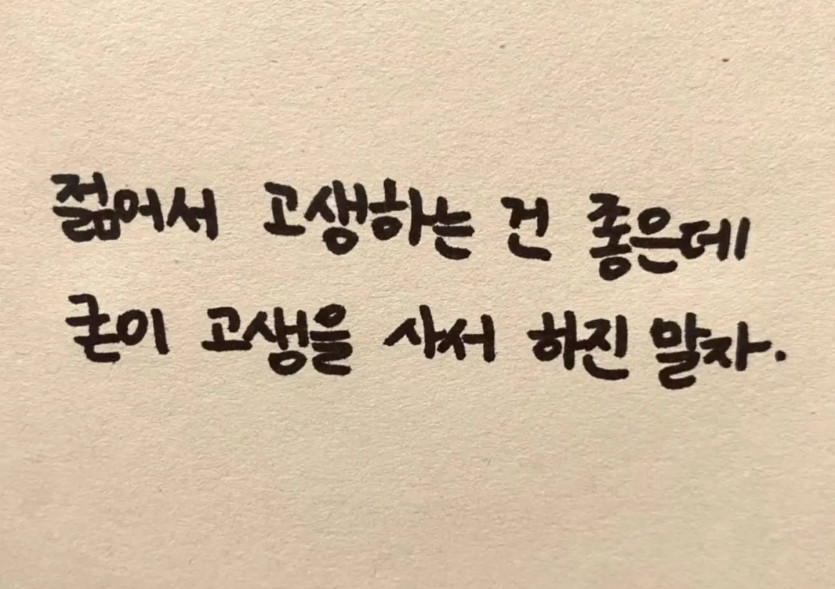 젊어서 고생하는 건 좋은데
굳이 고생을 사서 하진 말자.